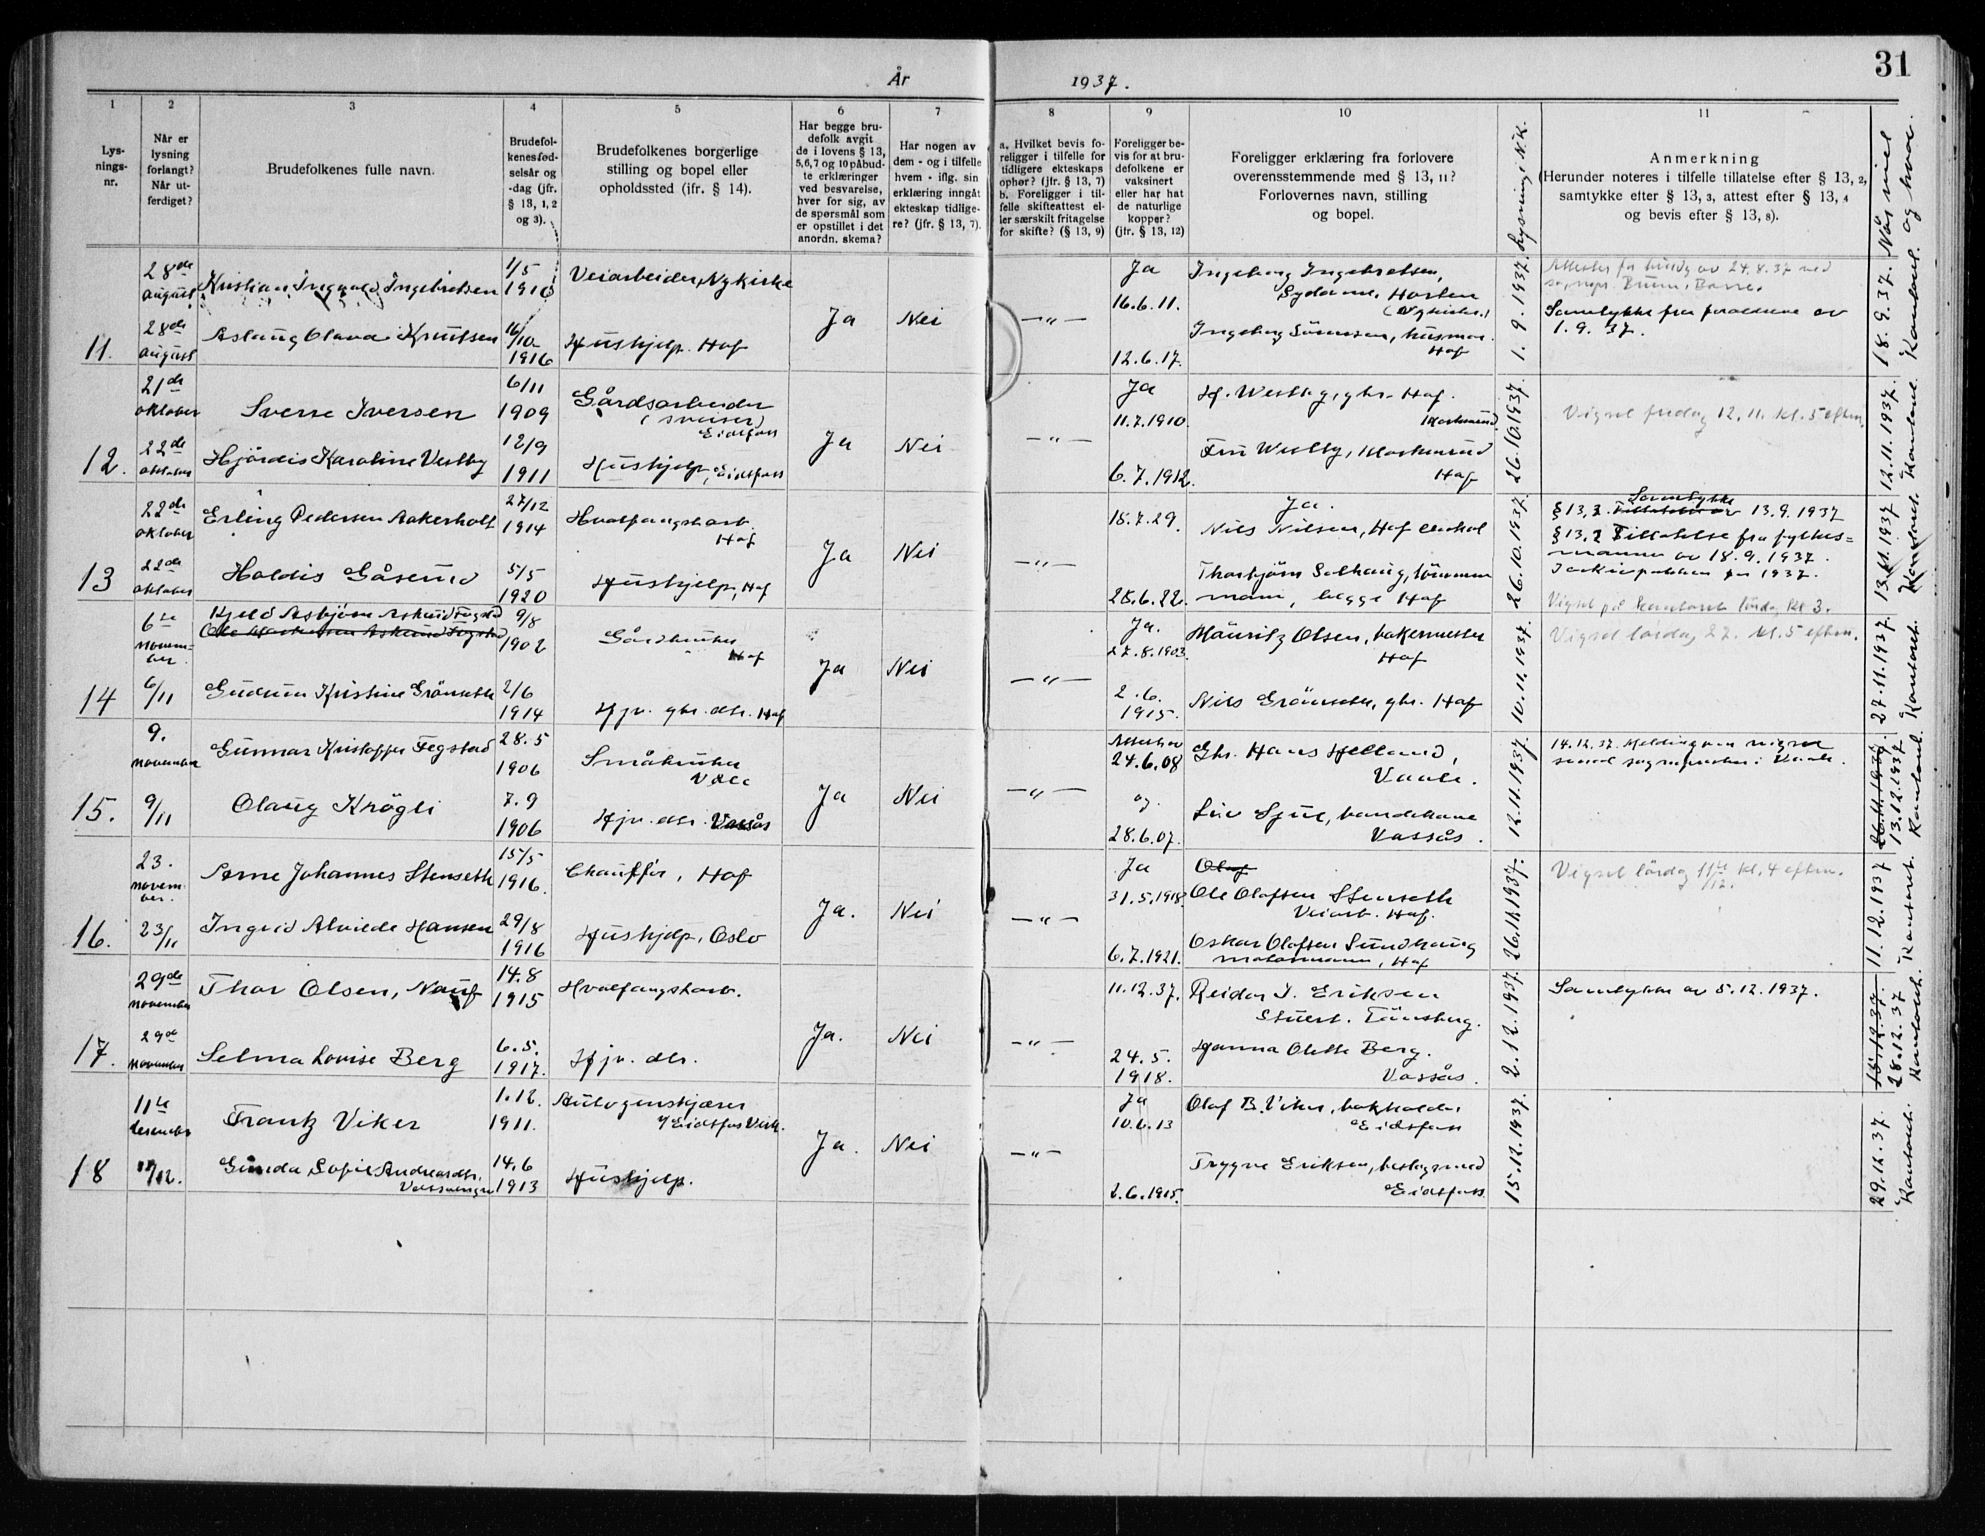 31
År 1937.
1 2 3 4 5 6 7 8 9 10 11
Lys-
nings-
nr.
Når er
lysning
forlangt?
Når ut-
ferdiget?
Brudefolkenes fulle navn.
Brudefol-
kenes fød-
selsår og
-dag (jfr.
§ 13, 1, 2
og 3).
Brudefolkenes borgerlige
stilling og bopel eller
opholdssted (ifr. § 14).
Har begge bru-
defolk avgit
de i lovens § 13,
5,6,7 og 10 påbud-
te erklæringer
ved besvarelse,
hver for sig, av
de spørsmål som
er opstillet i det
anordn. skema?
Har nogen av
dem - og i tilfelle
hvem - iflg. sin
erklæring inngåt
ekteskap tidlige-
re? (jfr. § 13, 7).
a, Hvilket bevis fo-
religger i tilfelle for
tidligere ekteskaps
ophør? (jfr. § 13, 7)
b. Foreligger i til-
felle skifteattest el-
ler særskilt fritagelse
for skifte? (§ 13, 9)
Foreligger be-
vis for at bru-
defolkene er
vaksinert
eller har hat
de naturlige
kopper?
(jfr. § 13, 12)
Foreligger erklæring fra forlovere
overensstemmende med § 13, 11?
Forlovernes navn, stilling
og bopel.
Lysnings N.K.
Anmerkning
(Herunder noteres i tilfelle tillatelse efter § 13, 2,
samtykke efter § 13, 3, attest efter § 13, 4
og bevis efter § 13, 8).
Når viet og hvor.
11.
28de august
Kristian Ingvald Ingebretsen
1/5 1910
Veiarbeider, Nykirke
28de august
Aslaug Olava Knutsen
16/10 1916
Hushjelp. Hof
Ja Nei
— " —
Ja
16.6.11.
12.6.17.
Ingeborg Ingebretsen,
Sydame, Horten
(Nykirke.)
Ingeborg Sørensen, husmor.
Hof
1.9.1937.
24.8.37 ved
Borre.
Samtykke fra foreldrene av
1.9.37.
18.9.37. Kontoret.
12.
21de oktober
Sverre Iversen
6/11 1909
Gårdsarbeider
(sveiser)
Eidsfoss
22de oktober
Hjördis Karoline Vestby
12/9 1911
Hushjelp, Eidsfoss
Ja Nei
— " —
Ja
11.7.1910.
6.7.1912.
H. Westby, gbr. Hof.
Fru Westby,
Hof
26.10.1937.
Vigsel fredag 12.11. kl. 5 eftm.
12.11.1937. Kontoret.
13
22de oktober
Erling Pedersen Aakerholt
27/12 1914
Hvalfangstarb.
Hof
22de oktober
Haldis Gåserud
5/5 1920
Hushjelp, Hof
Ja Nei
— " —
18.7.29.
28.6.22.
Ja.
Nils Nilsen, Hof
Thorbjörn Solhaug, tömmer-
mann, begge Hof
26.10.1937.
Samtykke
§ 13, 3. 13.9.1937
§ 13, 2 Tillatelse fra fylkes-
mannen av 18.9.1937.
1937.
Vigsel på kontoret lördag kl 3.
1937 Kontoret.
14
6te novem-
ber
Kjeld Asbjörn Askerud Fegstad
9/8 1902
Gårdbruker
Hof
6/11
Gudrun Kristine Grönseth
2/6 1914
Hjv. gbr. dtr. Hof
Ja Nei
— " —
Ja.
27.8.1903.
2.6.
1915.
Mauritz Olsen, bakermester
Hof
Nils Grönseth, gbr. Hof
10.11.1937.
Vigsel lördag 27. kl. 5 eftm.
27.11.1937. Kontoret.
15.
9. november
Gunnar Kristoffer Fegstad
28.5 1906
Småbruker
Våle
9/11
Olaug Krögli
7.9 1906
Hjv. dtr. Vassås
Ja Nei
— " —
24.6.08
og
28.6.07.
Gbr. Hans Helland,
Vaale.
Liv Sjue,
Vassås.
12.11.1937.
14.12.37. Melding om vigsel
sendt sogneprest i Vaale.
26.11.1937.
13.12.1937 Kontoret.
16.
23. novem-
ber.
Arne Johannes Stenseth
15/5 1916.
Chauffør, Hof
23/11
Ingrid Alvilde Hansen
29/8 1916
Hushjelp, Oslo
Ja. Nei
— " —
Ja
31.5.1918.
6.7.1921.
Olaf
Ole Olafsen Stenseth
Veiarb. Hof.
Oskar Olafsen Sundhaug
motormann, Hof
26.11.1937.
Vigsel lördag 11te/12. kl. 4 eftm.
11.12.1937 Kontoret.
17.
29de november
Thor Olsen, Nauf
14.8 1915
Hvalfangstarb.
29de november
Selma Lovise Berg
6.5. 1917.
Hjv. dtr.
Ja. Nei
— " —
11.12.37.
24.5.
1918.
Reidar J. Eriksen
Stuert. Tönsberg.
Hanna Olette Berg.
Vassås.
2.12.1937.
Samtykke av 5.12.1937.
18.12.37.
28.12.37 Kontoret.
18
11te desember
Frantz Viker
1.12. 1911.
Autogenskjærer
v/ Eidsfos Verk.
11/12.
Gunda Sofie Andreasdtr.
14.6 1913
Hushjelp.
Ja. Nei
— " —
Ja
10.6.13
2.6.1915.
Olaf B. Viker, bokholder
Eidsfoss
Trygve Eriksen, beslagsmed
Eidsfoss
15.12.1937.
29.12.37. Kontoret.